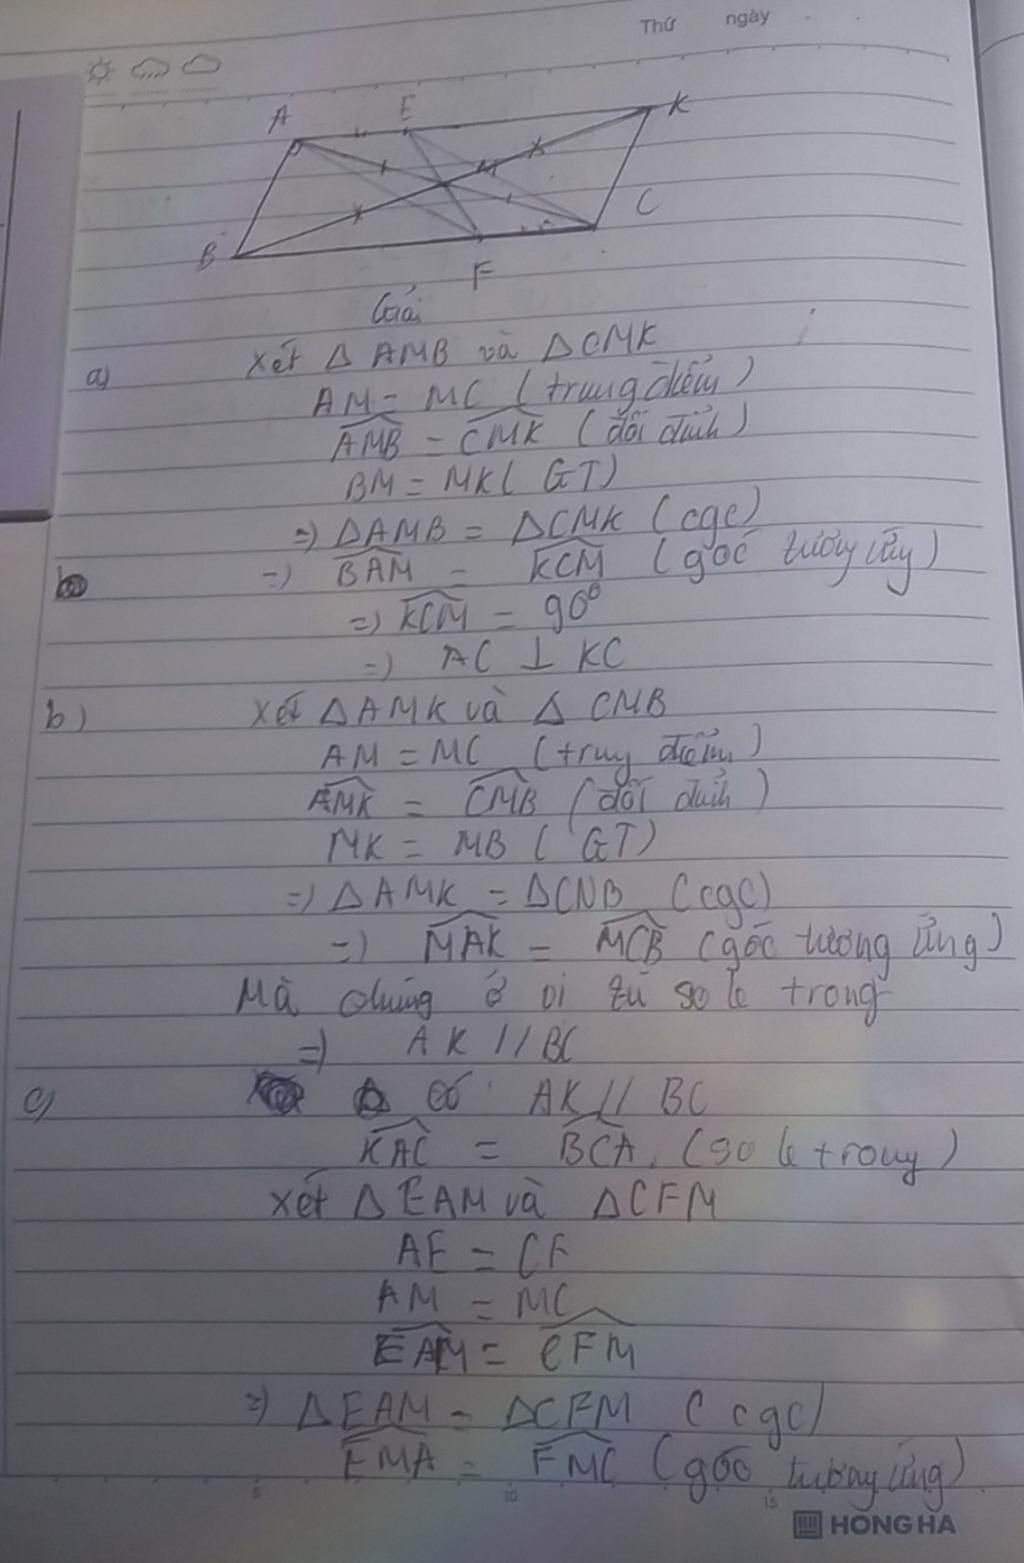 Thứ ngày
A E K
M
B F C
Giải
a) Xét Δ AMB và Δ CMK
AM = MC (trung điểm)
AMB = CMK (đối đỉnh)
BM = MK ( GT)
=) Δ AMB = Δ CMK (cgc)
=) BAM = KCM (góc tương ứng)
=) KCM = 90°
=) AC ⊥ KC
b) Xét Δ AMK và Δ CMB
AM = MC (trung điểm)
AMK = CMB (đối đỉnh)
MK = MB ( GT)
=) Δ AMK = Δ CNB (cgc)
=) MAK = MCB (góc tương ứng)
Mà chúng ở vi trí so le trong
=) AK // BC
c) có AK // BC
KAC = BCA (so le trong)
Xét Δ EAM và Δ CFM
AE = CF
AM = MC
EAM = CFM
=) Δ EAM = Δ CFM (cgc)
EMA = FMC (góc tương ứng)
5 10 15
HONG HA